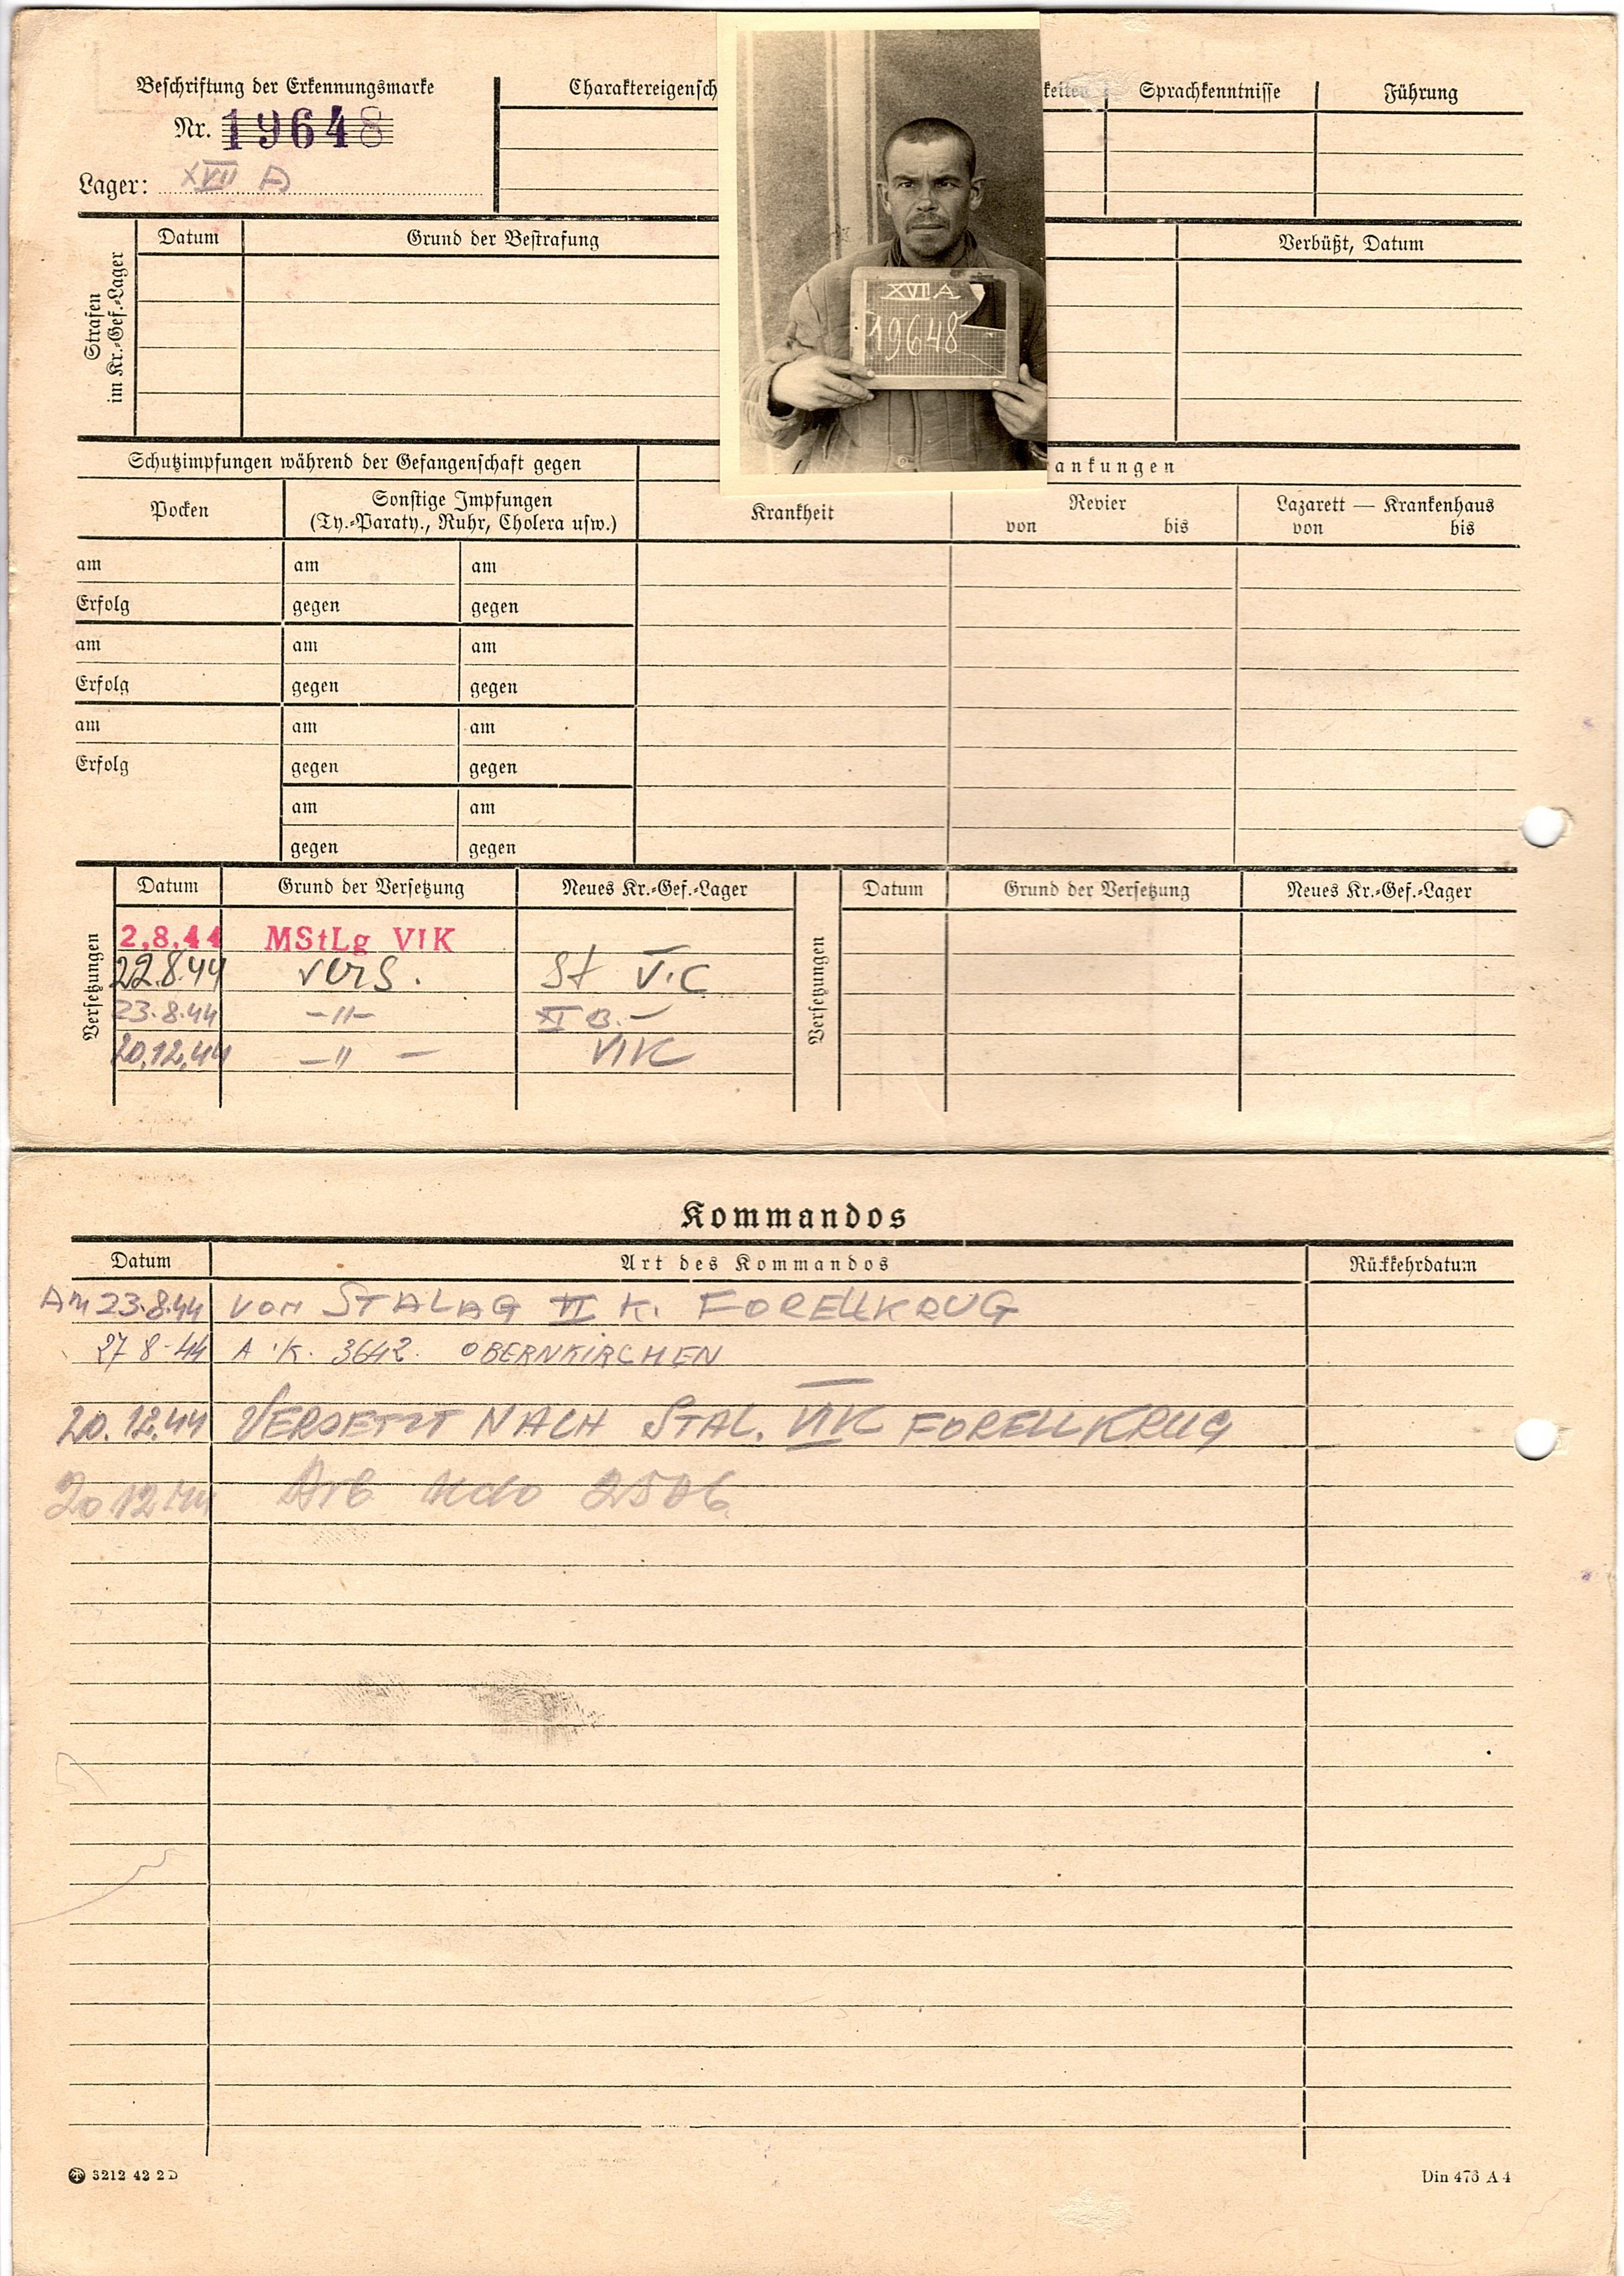 Beschriftung der Erkennungsmarke
Nr. 19648
Lager: XVII A
Charaktereigensch
keiten
Sprachkenntnisse
Führung
Strafen
im Kr.-Gef.-Lager
Datum
Grund der Bestrafung
Verbüßt, Datum
XVII A
19648
Schutzimpfungen während der Gefangenschaft gegen
ankungen
Pocken
Sonstige Impfungen
(Ty.-Paraty., Ruhr, Cholera usw.)
Krankheit
Revier
von bis
Lazarett — Krankenhaus
von bis
am am am
Erfolg gegen gegen
am am am
Erfolg gegen gegen
am am am
Erfolg gegen gegen
am am
gegen gegen
Versetzungen
Datum Grund der Versetzung Neues Kr.-Gef.-Lager
2.8.44 MStLg VIK
22.8.44 vers. St VIC
23.8.44 -"- XI B.-
20.12.44 -" - VIK
Versetzungen
Datum Grund der Versetzung Neues Kr.-Gef.-Lager
Kommandos
Datum Art des Kommandos Rückkehrdatum
Am 23.8.44 VON STALAG VI K. FORELLKRUG
27 8-44 A.K. 3642. OBERNKIRCHEN
20.12.44 VERSETZT NACH STAL. VIK FORELLKRUG
20.12.44 Arb Kdo 2506
3212 42 2D
Din 476 A 4